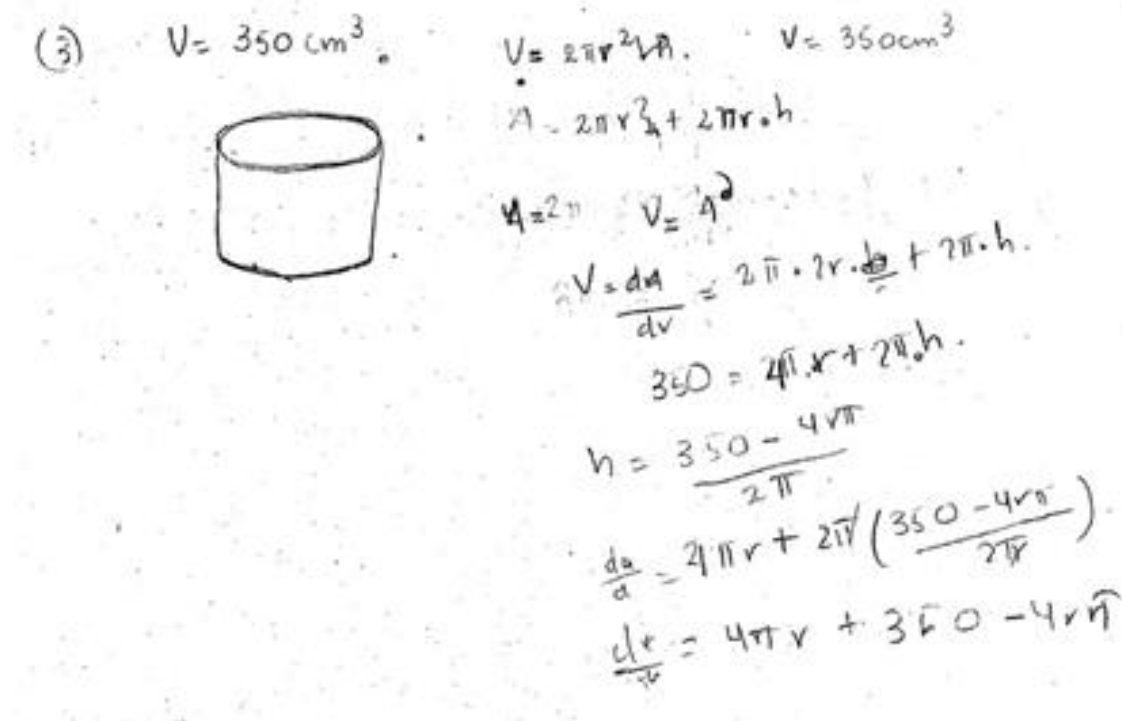 (3) V= 350 cm³.
V= 2πr²h. V= 350cm³
A = 2πr² + 2πr.h
A=2π V=
V = dA/dr = 2π . 2r. + 2π.h.
350 = 4π.r + 2π.h.
h = (350 - 4rπ)/2π
= 4πr + 2π((350 - 4rπ)/2π).
= 4πr + 350 - 4rπ